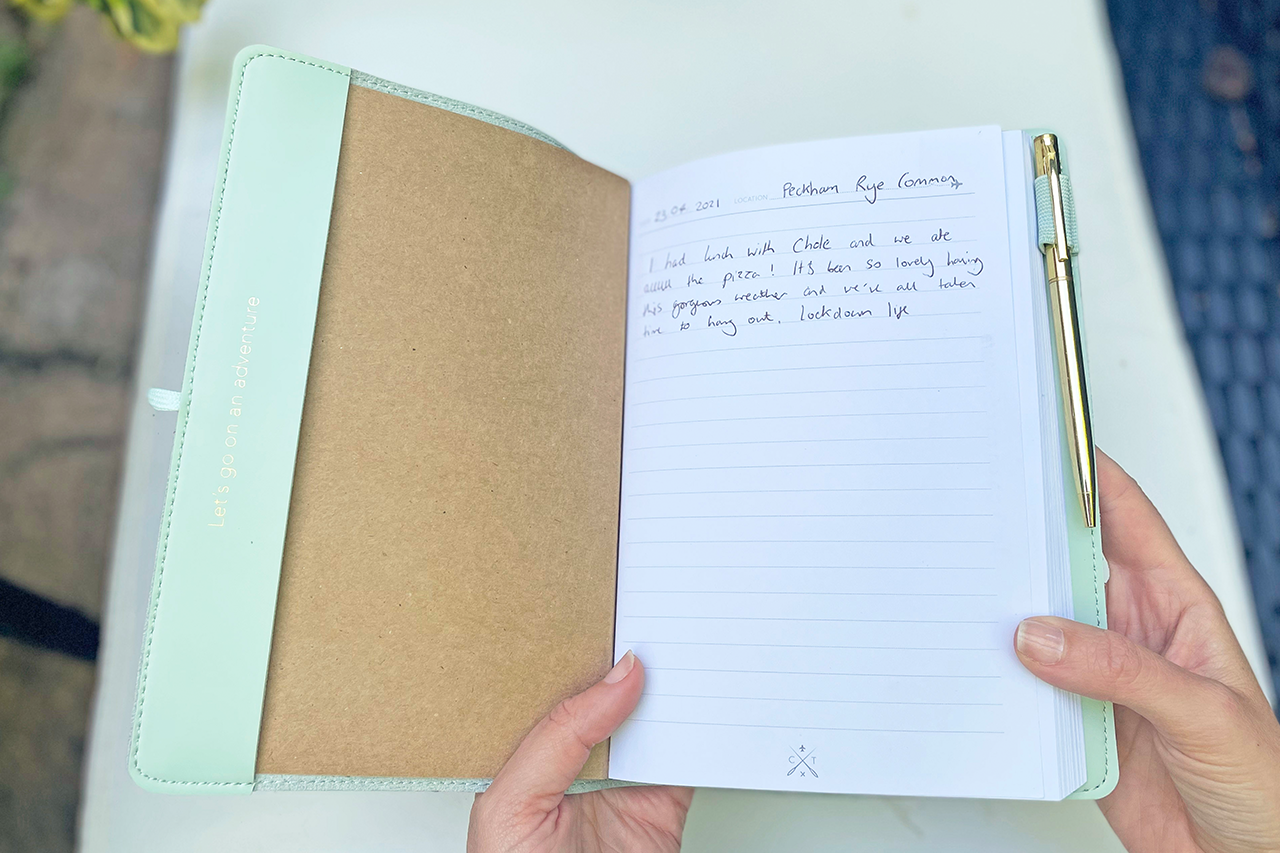 Let's go on an adventure
23 04 2021 LOCATION Peckham Rye Common
I had lunch with Chole and we ate
alllll the pizza! It's been so lovely having
this gorgeous weather and we've all taken
time to hang out. Lockdown life
C T